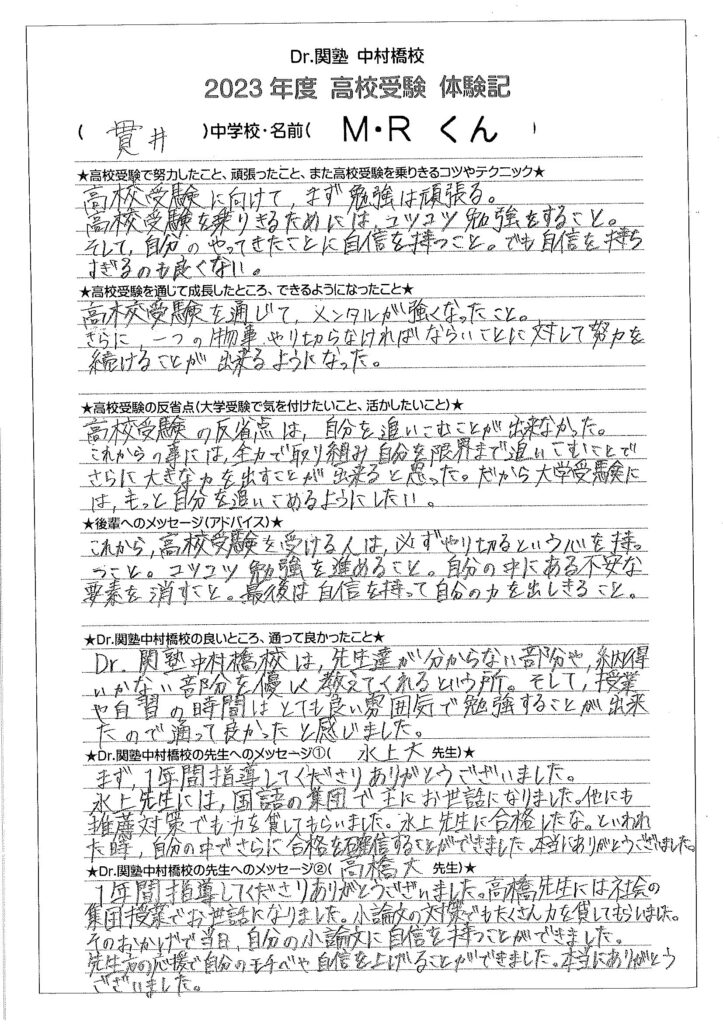 Dr.関塾 中村橋校
2023年度 高校受験 体験記
( 貫井 )中学校・名前( M・R くん )
★高校受験で努力したこと、頑張ったこと、また高校受験を乗りきるコツやテクニック★
高校受験に向けて、まず勉強は頑張る。
高校受験を乗りきるためには、コツコツ勉強をすること。
そして、自分のやってきたことに自信を持つこと。でも自信を持ち
すぎるのも良くない。
★高校受験を通じて成長したところ、できるようになったこと★
高校受験を通じて、メンタルが強くなったこと。
さらに、一つの物事やり切らなければならいことに対して努力を
続けることが出来るようになった。
★高校受験の反省点(大学受験で気を付けたいこと、活かしたいこと)★
高校受験の反省点は、自分を追いこむことが出来なかった。
これからの事には、全力で取り組み自分を限界まで追いこむことで
さらに大きな力を出すことが出来ると思った。だから大学受験に
は、もっと自分を追いこめるようにしたい。
★後輩へのメッセージ(アドバイス)★
これから、高校受験を受ける人は、必ずやり切るという心を持
つこと。コツコツ勉強を進めること。自分の中にある不安な
要素を消すこと。最後は自信を持って自分の力を出しきること。
★Dr.関塾中村橋校の良いところ、通って良かったこと★
Dr.関塾中村橋校は、先生達が分からない部分や、納得
いかない部分を優しく教えてくれるという所。そして、授業
や自習の時間はとても良い雰囲気で勉強することが出来
たので通って良かったと感じました。
★Dr.関塾中村橋校の先生へのメッセージ①( 水上大 先生)★
まず、1年間指導してくださりありがとうございました。
水上先生には、国語の集団で主にお世話になりました。他にも
推薦対策でも力を貸してもらいました。水上先生に合格したな。といわれ
た時、自分の中でさらに合格を確信することができました。本当にありがとうございました。
★Dr.関塾中村橋校の先生へのメッセージ②( 高橋大 先生)★
1年間指導してくださりありがとうございました。高橋先生には社会の
集団授業でお世話になりました。小論文の対策でもたくさん力を貸してもらいました。
そのおかげで当日、自分の小論文に自信を持つことができました。
先生方の応援で自分のモチベや自信を上げることができました。本当にありがとう
ございました。